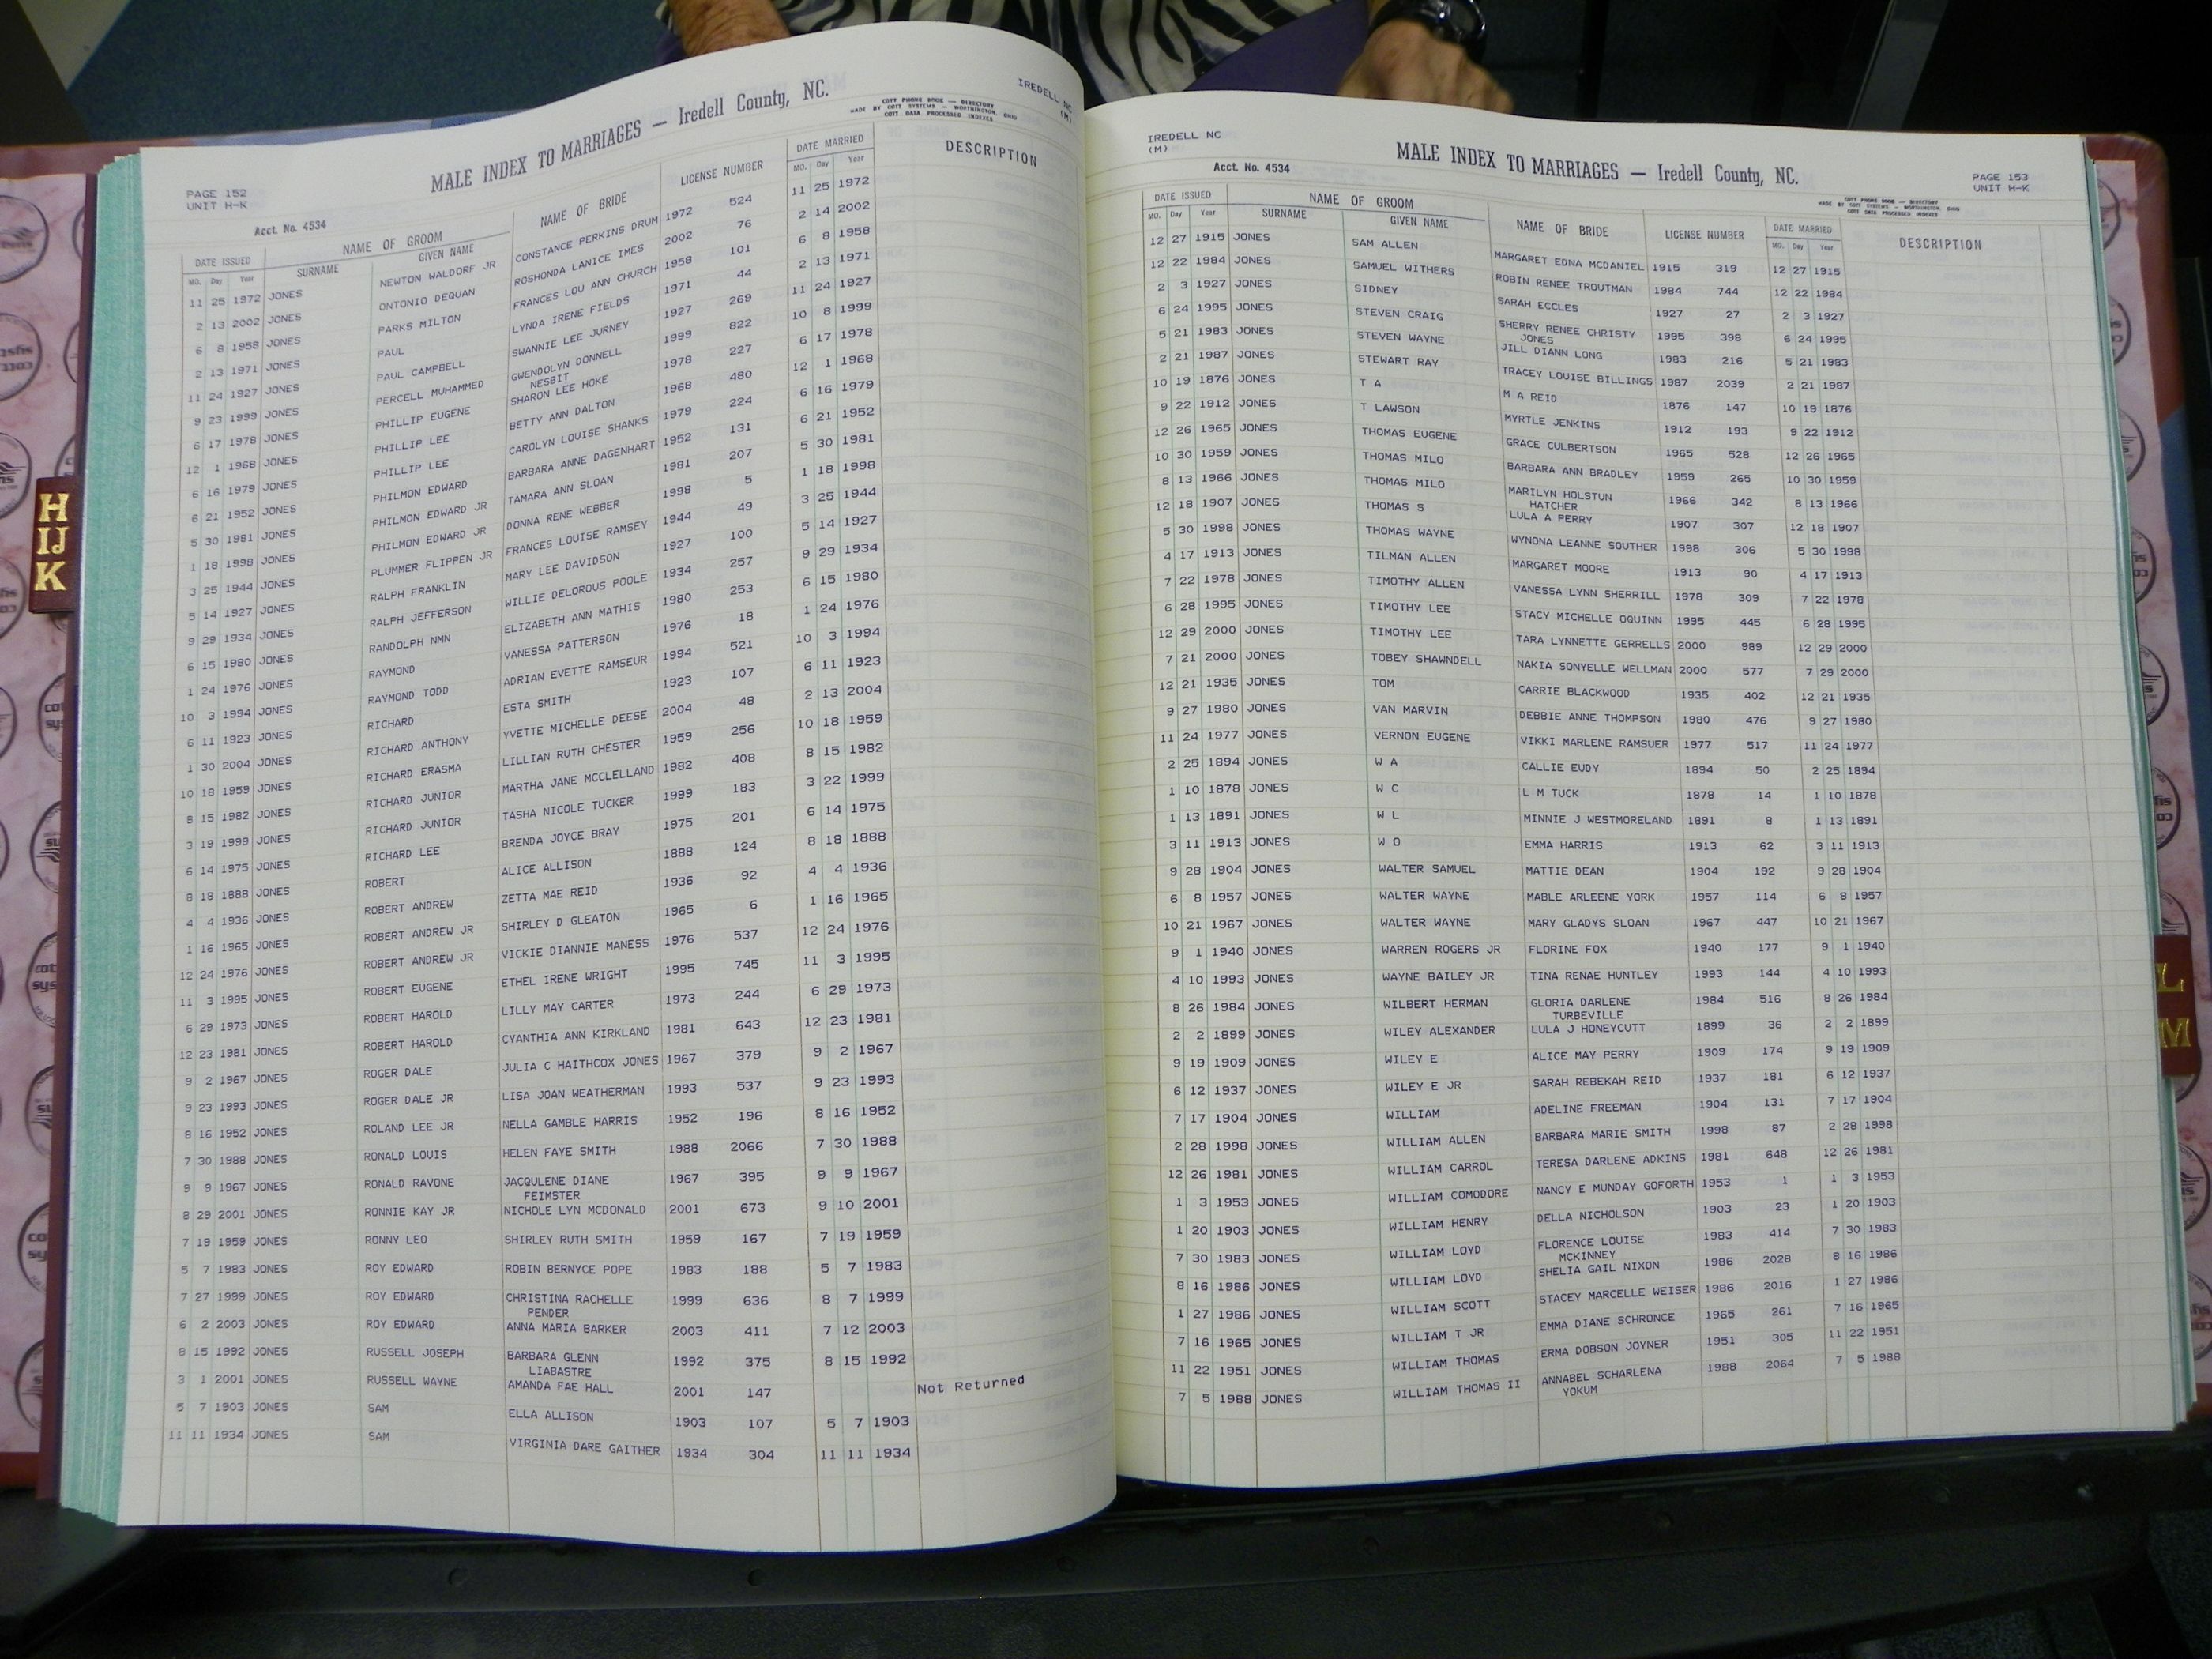 PAGE 152
UNIT H-K
MALE INDEX TO MARRIAGES — Iredell County, NC.
COTT PHONE BOOK — DIRECTORY
MADE BY COTT SYSTEMS — WORTHINGTON, OHIO
COTT DATA PROCESSED INDEXES
IREDELL NC
(M)
Acct. No. 4534
DATE ISSUED NAME OF GROOM NAME OF BRIDE LICENSE NUMBER DATE MARRIED DESCRIPTION
MO. Day Year SURNAME GIVEN NAME MO. Day Year
11 25 1972 JONES NEWTON WALDORF JR CONSTANCE PERKINS DRUM 1972 524 11 25 1972
2 13 2002 JONES ONTONIO DEQUAN ROSHONDA LANICE IMES 2002 76 2 14 2002
6 8 1958 JONES PARKS MILTON FRANCES LOU ANN CHURCH 1958 101 6 8 1958
2 13 1971 JONES PAUL LYNDA IRENE FIELDS 1971 44 2 13 1971
11 24 1927 JONES PAUL CAMPBELL SWANNIE LEE JURNEY 1927 269 11 24 1927
9 23 1999 JONES PERCELL MUHAMMED GWENDOLYN DONNELL 1999 822 10 8 1999
NESBIT
6 17 1978 JONES PHILLIP EUGENE SHARON LEE HOKE 1978 227 6 17 1978
12 1 1968 JONES PHILLIP LEE BETTY ANN DALTON 1968 480 12 1 1968
6 16 1979 JONES PHILLIP LEE CAROLYN LOUISE SHANKS 1979 224 6 16 1979
6 21 1952 JONES PHILMON EDWARD BARBARA ANNE DAGENHART 1952 131 6 21 1952
5 30 1981 JONES PHILMON EDWARD JR TAMARA ANN SLOAN 1981 207 5 30 1981
1 18 1998 JONES PHILMON EDWARD JR DONNA RENE WEBBER 1998 5 1 18 1998
3 25 1944 JONES PLUMMER FLIPPEN JR FRANCES LOUISE RAMSEY 1944 49 3 25 1944
5 14 1927 JONES RALPH FRANKLIN MARY LEE DAVIDSON 1927 100 5 14 1927
9 29 1934 JONES RALPH JEFFERSON WILLIE DELOROUS POOLE 1934 257 9 29 1934
6 15 1980 JONES RANDOLPH NMN ELIZABETH ANN MATHIS 1980 253 6 15 1980
1 24 1976 JONES RAYMOND VANESSA PATTERSON 1976 18 1 24 1976
10 3 1994 JONES RAYMOND TODD ADRIAN EVETTE RAMSEUR 1994 521 10 3 1994
6 11 1923 JONES RICHARD ESTA SMITH 1923 107 6 11 1923
1 30 2004 JONES RICHARD ANTHONY YVETTE MICHELLE DEESE 2004 48 2 13 2004
10 18 1959 JONES RICHARD ERASMA LILLIAN RUTH CHESTER 1959 256 10 18 1959
8 15 1982 JONES RICHARD JUNIOR MARTHA JANE MCCLELLAND 1982 408 8 15 1982
3 19 1999 JONES RICHARD JUNIOR TASHA NICOLE TUCKER 1999 183 3 22 1999
6 14 1975 JONES RICHARD LEE BRENDA JOYCE BRAY 1975 201 6 14 1975
8 18 1888 JONES ROBERT ALICE ALLISON 1888 124 8 18 1888
4 4 1936 JONES ROBERT ANDREW ZETTA MAE REID 1936 92 4 4 1936
1 16 1965 JONES ROBERT ANDREW JR SHIRLEY D GLEATON 1965 6 1 16 1965
12 24 1976 JONES ROBERT ANDREW JR VICKIE DIANNIE MANESS 1976 537 12 24 1976
11 3 1995 JONES ROBERT EUGENE ETHEL IRENE WRIGHT 1995 745 11 3 1995
6 29 1973 JONES ROBERT HAROLD LILLY MAY CARTER 1973 244 6 29 1973
12 23 1981 JONES ROBERT HAROLD CYANTHIA ANN KIRKLAND 1981 643 12 23 1981
9 2 1967 JONES ROGER DALE JULIA C HAITHCOX JONES 1967 379 9 2 1967
9 23 1993 JONES ROGER DALE JR LISA JOAN WEATHERMAN 1993 537 9 23 1993
8 16 1952 JONES ROLAND LEE JR NELLA GAMBLE HARRIS 1952 196 8 16 1952
7 30 1988 JONES RONALD LOUIS HELEN FAYE SMITH 1988 2066 7 30 1988
9 9 1967 JONES RONALD RAVONE JACQULENE DIANE 1967 395 9 9 1967
FEIMSTER
8 29 2001 JONES RONNIE KAY JR NICHOLE LYN MCDONALD 2001 673 9 10 2001
7 19 1959 JONES RONNY LEO SHIRLEY RUTH SMITH 1959 167 7 19 1959
5 7 1983 JONES ROY EDWARD ROBIN BERNYCE POPE 1983 188 5 7 1983
7 27 1999 JONES ROY EDWARD CHRISTINA RACHELLE 1999 636 8 7 1999
PENDER
6 2 2003 JONES ROY EDWARD ANNA MARIA BARKER 2003 411 7 12 2003
8 15 1992 JONES RUSSELL JOSEPH BARBARA GLENN 1992 375 8 15 1992
LIABASTRE
3 1 2001 JONES RUSSELL WAYNE AMANDA FAE HALL 2001 147 Not Returned
5 7 1903 JONES SAM ELLA ALLISON 1903 107 5 7 1903
11 11 1934 JONES SAM VIRGINIA DARE GAITHER 1934 304 11 11 1934
IREDELL NC
(M)
Acct. No. 4534
MALE INDEX TO MARRIAGES — Iredell County, NC.
PAGE 153
UNIT H-K
COTT PHONE BOOK — DIRECTORY
MADE BY COTT SYSTEMS — WORTHINGTON, OHIO
COTT DATA PROCESSED INDEXES
DATE ISSUED NAME OF GROOM NAME OF BRIDE LICENSE NUMBER DATE MARRIED DESCRIPTION
MO. Day Year SURNAME GIVEN NAME MO. Day Year
12 27 1915 JONES SAM ALLEN MARGARET EDNA MCDANIEL 1915 319 12 27 1915
12 22 1984 JONES SAMUEL WITHERS ROBIN RENEE TROUTMAN 1984 744 12 22 1984
2 3 1927 JONES SIDNEY SARAH ECCLES 1927 27 2 3 1927
6 24 1995 JONES STEVEN CRAIG SHERRY RENEE CHRISTY 1995 398 6 24 1995
JONES
5 21 1983 JONES STEVEN WAYNE JILL DIANN LONG 1983 216 5 21 1983
2 21 1987 JONES STEWART RAY TRACEY LOUISE BILLINGS 1987 2039 2 21 1987
10 19 1876 JONES T A M A REID 1876 147 10 19 1876
9 22 1912 JONES T LAWSON MYRTLE JENKINS 1912 193 9 22 1912
12 26 1965 JONES THOMAS EUGENE GRACE CULBERTSON 1965 528 12 26 1965
10 30 1959 JONES THOMAS MILO BARBARA ANN BRADLEY 1959 265 10 30 1959
8 13 1966 JONES THOMAS MILO MARILYN HOLSTUN 1966 342 8 13 1966
HATCHER
12 18 1907 JONES THOMAS S LULA A PERRY 1907 307 12 18 1907
5 30 1998 JONES THOMAS WAYNE WYNONA LEANNE SOUTHER 1998 306 5 30 1998
4 17 1913 JONES TILMAN ALLEN MARGARET MOORE 1913 90 4 17 1913
7 22 1978 JONES TIMOTHY ALLEN VANESSA LYNN SHERRILL 1978 309 7 22 1978
6 28 1995 JONES TIMOTHY LEE STACY MICHELLE OQUINN 1995 445 6 28 1995
12 29 2000 JONES TIMOTHY LEE TARA LYNNETTE GERRELLS 2000 989 12 29 2000
7 21 2000 JONES TOBEY SHAWNDELL NAKIA SONYELLE WELLMAN 2000 577 7 29 2000
12 21 1935 JONES TOM CARRIE BLACKWOOD 1935 402 12 21 1935
9 27 1980 JONES VAN MARVIN DEBBIE ANNE THOMPSON 1980 476 9 27 1980
11 24 1977 JONES VERNON EUGENE VIKKI MARLENE RAMSUER 1977 517 11 24 1977
2 25 1894 JONES W A CALLIE EUDY 1894 50 2 25 1894
1 10 1878 JONES W C L M TUCK 1878 14 1 10 1878
1 13 1891 JONES W L MINNIE J WESTMORELAND 1891 8 1 13 1891
3 11 1913 JONES W O EMMA HARRIS 1913 62 3 11 1913
9 28 1904 JONES WALTER SAMUEL MATTIE DEAN 1904 192 9 28 1904
6 8 1957 JONES WALTER WAYNE MABLE ARLEENE YORK 1957 114 6 8 1957
10 21 1967 JONES WALTER WAYNE MARY GLADYS SLOAN 1967 447 10 21 1967
9 1 1940 JONES WARREN ROGERS JR FLORINE FOX 1940 177 9 1 1940
4 10 1993 JONES WAYNE BAILEY JR TINA RENAE HUNTLEY 1993 144 4 10 1993
8 26 1984 JONES WILBERT HERMAN GLORIA DARLENE 1984 516 8 26 1984
TURBEVILLE
2 2 1899 JONES WILEY ALEXANDER LULA J HONEYCUTT 1899 36 2 2 1899
9 19 1909 JONES WILEY E ALICE MAY PERRY 1909 174 9 19 1909
6 12 1937 JONES WILEY E JR SARAH REBEKAH REID 1937 181 6 12 1937
7 17 1904 JONES WILLIAM ADELINE FREEMAN 1904 131 7 17 1904
2 28 1998 JONES WILLIAM ALLEN BARBARA MARIE SMITH 1998 87 2 28 1998
12 26 1981 JONES WILLIAM CARROL TERESA DARLENE ADKINS 1981 648 12 26 1981
1 3 1953 JONES WILLIAM COMODORE NANCY E MUNDAY GOFORTH 1953 1 1 3 1953
1 20 1903 JONES WILLIAM HENRY DELLA NICHOLSON 1903 23 1 20 1903
7 30 1983 JONES WILLIAM LOYD FLORENCE LOUISE 1983 414 7 30 1983
MCKINNEY
8 16 1986 JONES WILLIAM LOYD SHELIA GAIL NIXON 1986 2028 8 16 1986
1 27 1986 JONES WILLIAM SCOTT STACEY MARCELLE WEISER 1986 2016 1 27 1986
7 16 1965 JONES WILLIAM T JR EMMA DIANE SCHRONCE 1965 261 7 16 1965
11 22 1951 JONES WILLIAM THOMAS ERMA DOBSON JOYNER 1951 305 11 22 1951
7 5 1988 JONES WILLIAM THOMAS II ANNABEL SCHARLENA 1988 2064 7 5 1988
YOKUM
H
IJ
K
L
M